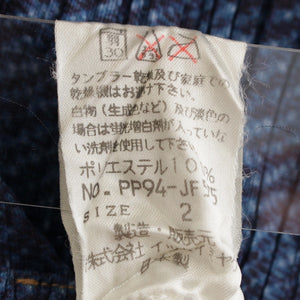 弱
30
タンブラー乾燥及び家庭での
乾燥機はお避け下さい。
白物(生成色など)及び淡色の
場合は蛍光増白剤が入っていな
い洗剤は使用して下さい。
ポリエステル100%
NO. PP94-JF
SIZE 2
製造・販売元
株式会社イッセイミヤ
日本製